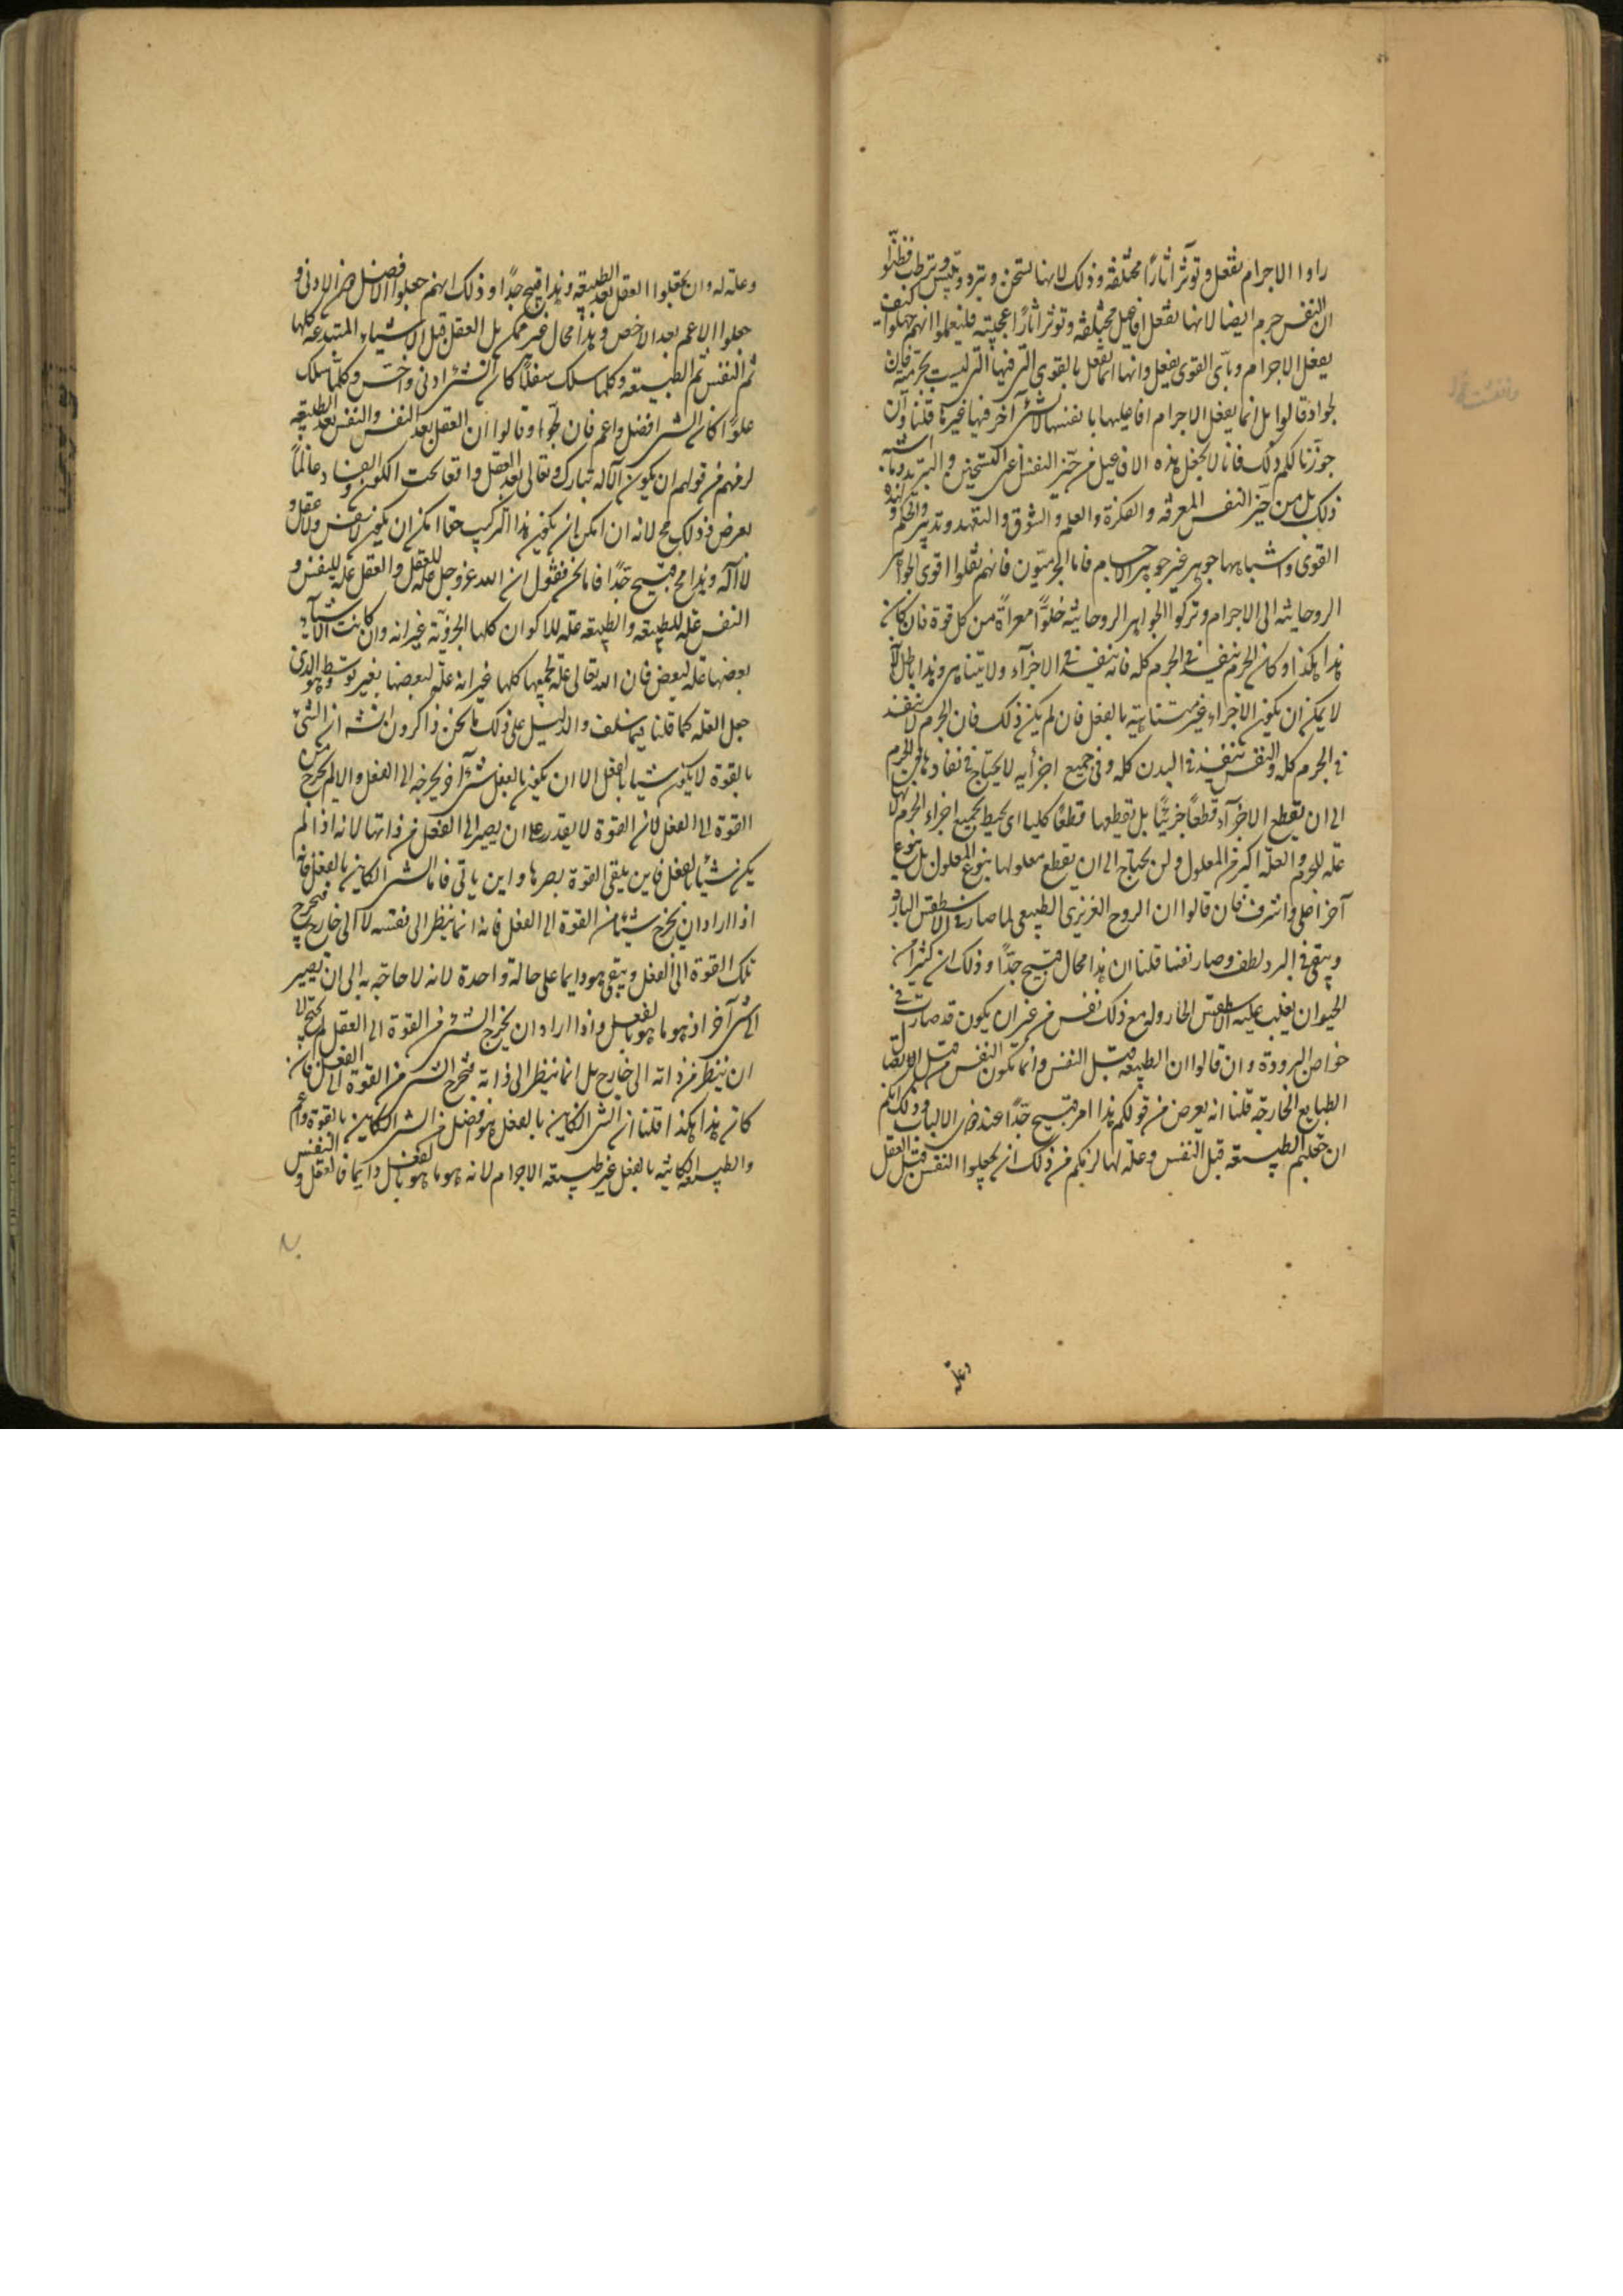 راوا الاجرام تفعل وتوثر آثارًا مختلفة وذلك لانها تسخن وتبرد وتيبس وترطب فظنّوا
ان النفس جرم ايضا لانها تفعل افاعيل مختلفة وتوثر آثارًا عجيبة فليعلموا انهم جهلوا كيف
يفعل الاجرام وباّى القوى يفعل وانها انما تفعل بالقوى التى فيها التى ليست بجرمية فان
لجوا وقالوا بل انما يفعل الاجرام افاعيلها بانفسها لا بشئ آخر فيها غيرها قلنا وان
جوزنا لكم ذلك فانا لا نجعل هذه الافاعيل من حيّز النفس اعنى التسخين والتبريد وما اشبه
ذلك بل من حيّز النفس المعرفة والفكرة والعلم والشوق والتعهد وتدبير والحكم ولهذه
القوى واشباهها جوهر غير جوهر الاجسام فاما الجرميّون فانهم نقلوا قوى الجواهر
الروحانية الى الاجرام وتركوا الجواهر الروحانية خلوًّا معراةً من كل قوة فان كان
هذا هكذا وكان الجرم ينفذ فى الجرم كله فانه ينفذ فى الاجزآء ولا يتناهى وهذا باطل لانه
لا يمكن ان يكون الاجزاء غير متناهية بالفعل فان لم يكن ذلك فان الجرم لا ينفذ
فى الجرم كله والنفس تنفذ فى البدن كله وفى جميع اجزآيه لا يحتاج فى نفاذها فى الجرم
الى ان يقطع الاجزآء قطعًا جزئيًّا بل تقطعها قطعًا كليا اى يحيط بجميع اجزاء الجرم لانها
علة للجرم والعلّة اكبر من المعلول ولن يحتاج الى ان يقطع معلولها بنوع المعلول بل بنوع
آخر اعلى واشرف فان قالوا ان الروح الغريزى الطبيعى لما صار فى الاسطقس البارد
وبقى فى البرد لطف وصار نفسا قلنا ان هذا محال قبيح جدًّا وذلك ان كثيرا من
الحيوان يغلب عليه الاسطقس الحار وله مع ذلك نفس من غير ان يكون قد صارت فى
خواص البرودة وان قالوا ان الطبيعة قبل النفس وانما تكون النفس من قبل اتصال
الطبايع الخارجة قلنا انه يعرض من قولكم هذا امر قبيح جدًّا عند ذوى الالباب وذلك انكم
ان جعلتم الطبيعة قبل النفس وعلة لها لزمكم من ذلك ان تجعلوا النفس قبل العقل
وعلة
وعلة له وان تجعلوا العقل بعد الطبيعة وهذا قبيح جدًّا وذلك انهم جعلوا الافضل من الادنى و
جعلوا الاعم بعد الاخص وهذا محال غير ممكن بل العقل قبل الاشياء المبتدعة كلها
ثم النفس ثم الطبيعة وكلما سلك سفلًا كان الشئ ادنى واخسّ وكلما سلك
علوًّا كان الشئ افضل واعم فان لجّوا وقالوا ان العقل بعد النفس والنفس بعد الطبيعة
لزمهم من قولهم ان يكون الاله تبارك وتعالى بعد العقل واقعا تحت الكون والفساد عالمًا
بعرض وذلك مح لانه ان امكن ان يكون هذا التركيب حقا امكن ان يكون لا نفس ولا عقل و
لا اله وهذا مح قبيح جدًّا فاما نحن فنقول ان الله عز وجل علة للعقل والعقل علة للنفس و
النفس علة للطبيعة والطبيعة علة للاكوان كلها الجزوية غير انه وان كانت الاشياء
بعضها علة لبعض فان الله تعالى علة لجميعها كلها غير انه علة لبعضها بغير توسط وهو الذى
جعل العلة كما قلنا فيما سلف والدليل على ذلك ما نحن ذاكرون ان شه ان الشئ
بالقوة لا يكون شيئا بالفعل الا ان يكون بالفعل شئ آخر يخرجه الى الفعل والا لم يخرج من
القوة الى الفعل لان القوة لا يقدر على ان يصير الى الفعل من ذاتها لانه اذا لم
يكن شئ بالفعل فاين يلقى القوة بصرها واين ياتى فاما الشئ الكاين بالفعل فانه
اذا اراد ان يخرج شيئا من القوة الى الفعل فانه انما ينظر الى نفسه لا الى خارج فيخرج
تلك القوة الى الفعل ويبقى هو دايما على حالة واحدة لانه لا حاجة به الى ان يصير
الى شئ آخر اذ هو ما هو بالفعل واذا اراد ان يخرج الشئ من القوة الى الفعل لم يحتج الى
ان ينظر من ذاته الى خارج بل انما ينظر الى ذاته فيخرج الشئ من القوة الى الفعل فان
كان هذا هكذا قلنا ان الشئ الكاين بالفعل هو افضل من الشئ الكاين بالقوة واعم
والطبيعة الكائنة بالفعل غير طبيعة الاجرام لانه هو ما هو بالفعل دايما فالعقل والنفس